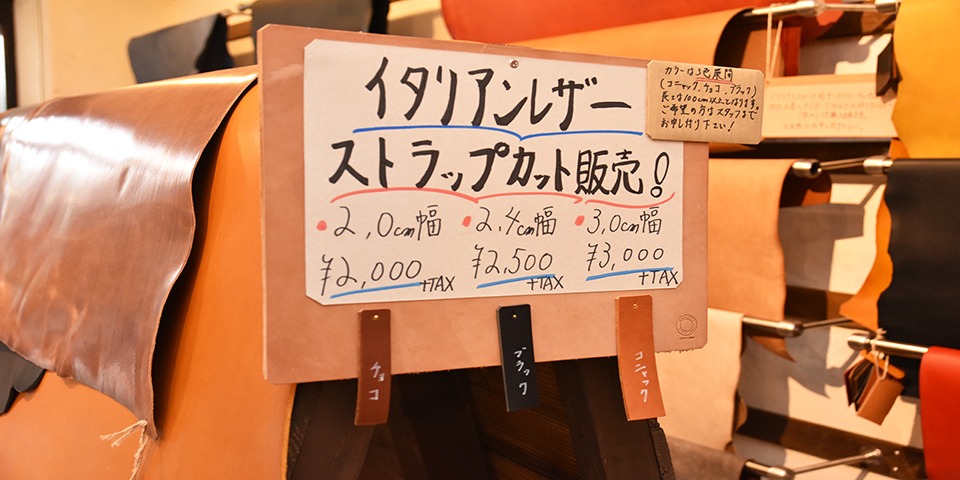 イタリアンレザー
ストラップカット販売!
・2,0cm幅 ・2,4cm幅 ・3,0cm幅
¥2,000+TAX ¥2,500+TAX ¥3,000+TAX
カラーは3色展開
(コニャック、チョコ、ブラック)
長さは100cm以上となります。
ご希望の方はスタッフまで
お申し付け下さい!
チョコ
ブラック
コニャック